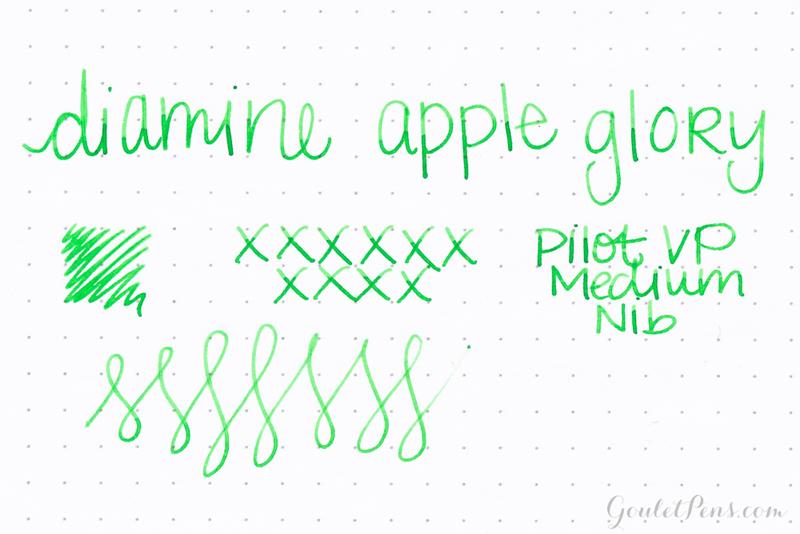 diamine apple glory
xxxxxx
xxxx
Pilot VP
Medium
Nib
GouletPens.com